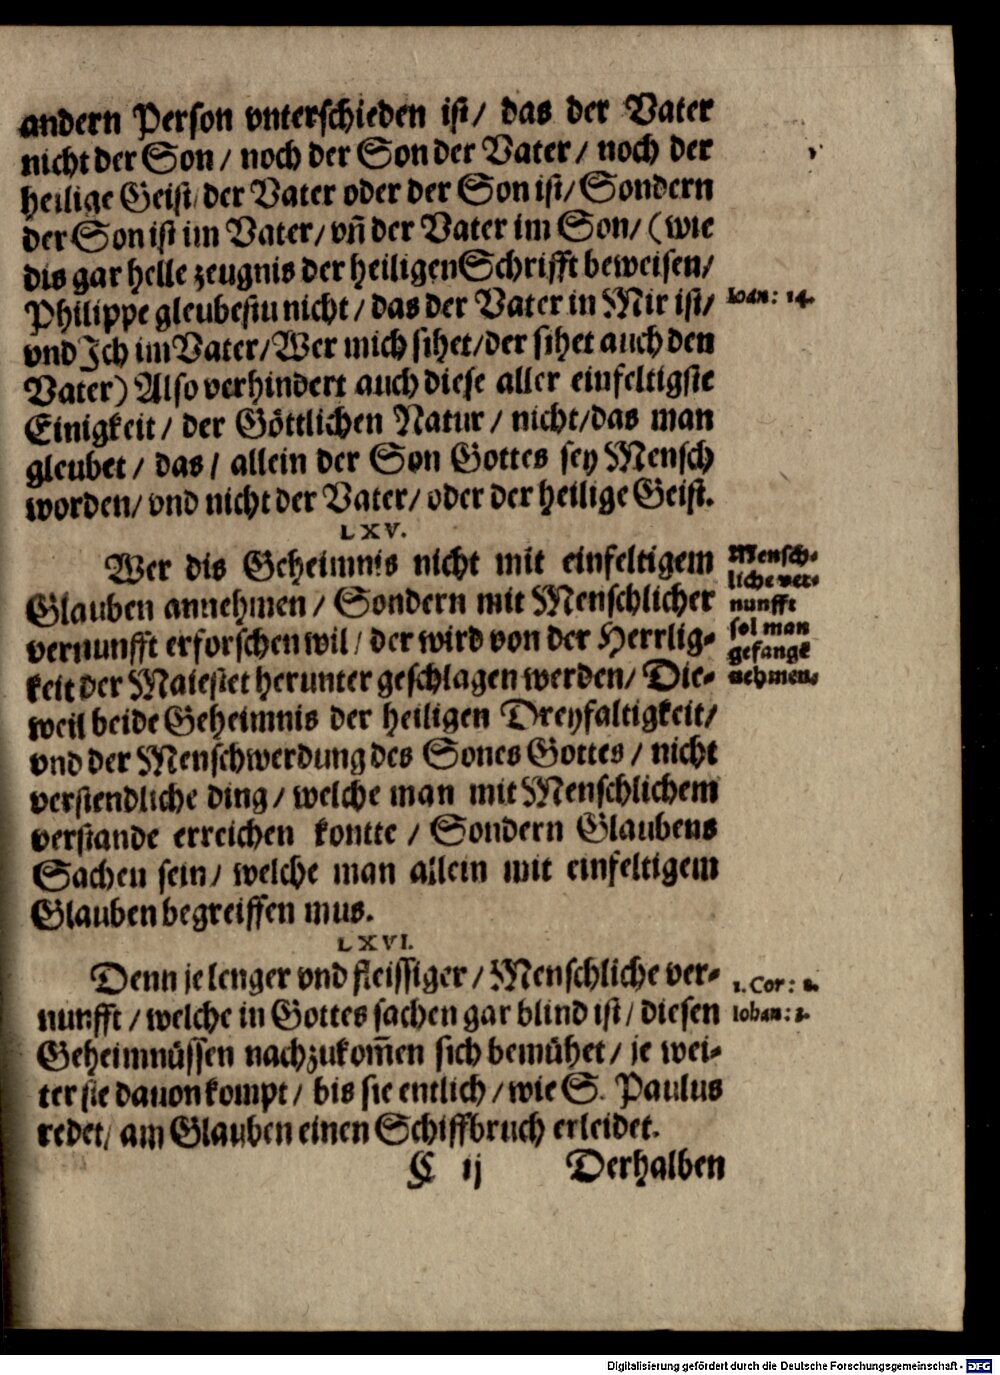 andern Person vnterschieden ist/ das der Vater
nicht der Son/ noch der Son der Vater/ noch der
heilige Geist/ der Vater oder der Son ist/ Sondern
der Son ist im Vater/ vñ der Vater im Son/ (wie
dis gar helle zeugnis der heiligen Schrifft beweisen/
Philippe gleubestu nicht/ das der Vater in Mir ist/
Ioan: 14.
vnd Ich im Vater/ Wer mich sihet/ der sihet auch den
Vater) Also verhindert auch diese aller einfeltigste
Einigkeit/ der Göttlichen Natur/ nicht/ das man
gleubet/ das/ allein der Son Gottes sey Mensch
worden/ vnd nicht der Vater/ oder der heilige Geist.
LXV.
Wer dis Geheimnis nicht mit einfeltigem
Glauben annehmen/ Sondern mit Menschlicher
vernunfft erforschen wil/ der wird von der Herrlig-
keit der Maiestet herunter geschlagen werden/ Die-
weil beide Geheimnis der heiligen Dreyfaltigkeit/
vnd der Menschwerdung des Sones Gottes/ nicht
verstendliche ding/ welche man mit Menschlichem
verstande erreichen kontte/ Sondern Glaubens
Sachen sein/ welche man allein mit einfeltigem
Glauben begreiffen mus.
Mensch-
liche ver-
nunfft
sol man
gefange
nehmen.
LXVI.
Denn je lenger vnd fleissiger/ Menschliche ver-
nunfft/ welche in Gottes sachen gar blind ist/ diesen
Geheimnüssen nachzukom̃en sich bemühet/ je wei-
ter sie dauon kompt/ bis sie entlich/ wie S. Paulus
redet/ am Glauben einen Schiffbruch erleidet.
1. Cor:
Iohan:
C ij Derhalben
Digitalisierung gefördert durch die Deutsche Forschungsgemeinschaft - DFG